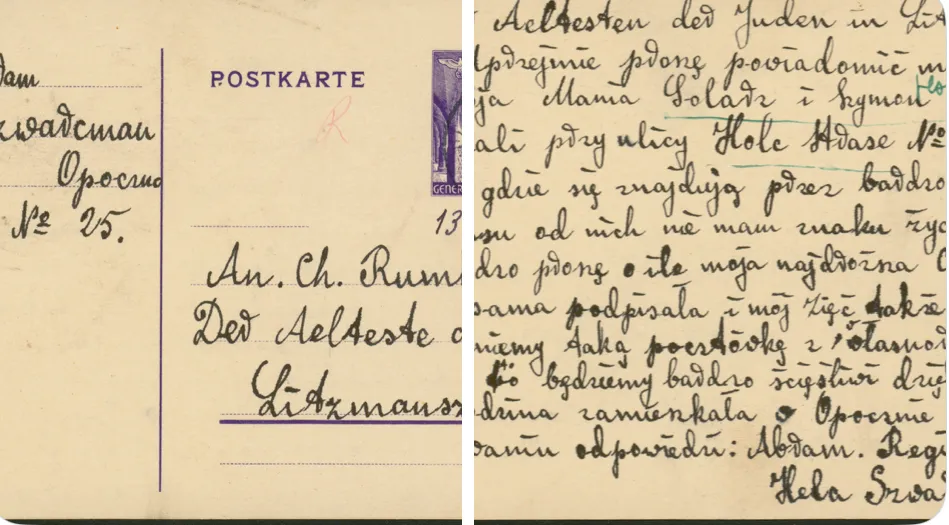 POSTKARTE
R
Opoczno
№ 25.
GENER
13
An. Ch. Rum
Der Aelteste d
Litzmannsz
Aeltesten der Juden in Lit
uprzejmie proszę powiadomić m
ja Mama Soladz i Szymon
ali przy ulicy Holc Strase №
gdzie się znajdują przez bardzo
su od nich nie mam znaku życ
dro proszę o ile moja najdrożna
sama podpisała i mój Zięć także
niemy taką pocztówkę z własnor
to będziemy bardzo szczęśliwi
dzina zamieszkała w Opocznie
waniu odpowiedzi: Abram. Regi
Hela Szwa